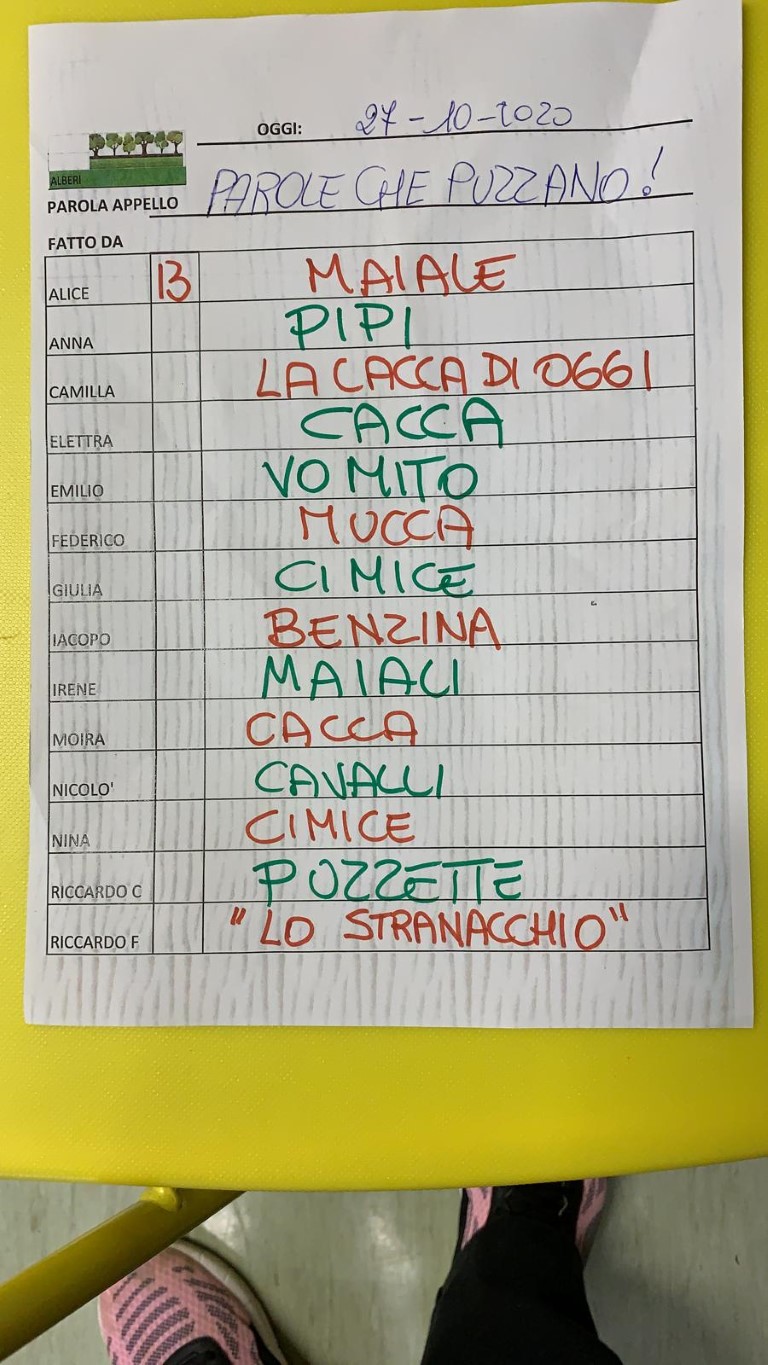 OGGI: 27-10-2020
ALBERI
PAROLA APPELLO PAROLE CHE PUZZANO!
FATTO DA
ALICE 13 MAIALE
ANNA PIPI
CAMILLA LA CACCA DI OGGI
ELETTRA CACCA
EMILIO VOMITO
FEDERICO MUCCA
GIULIA CIMICE
IACOPO BENZINA
IRENE MAIALI
MOIRA CACCA
NICOLO' CAVALLI
NINA CIMICE
RICCARDO C PUZZETTE
RICCARDO F "LO STRANACCHIO"